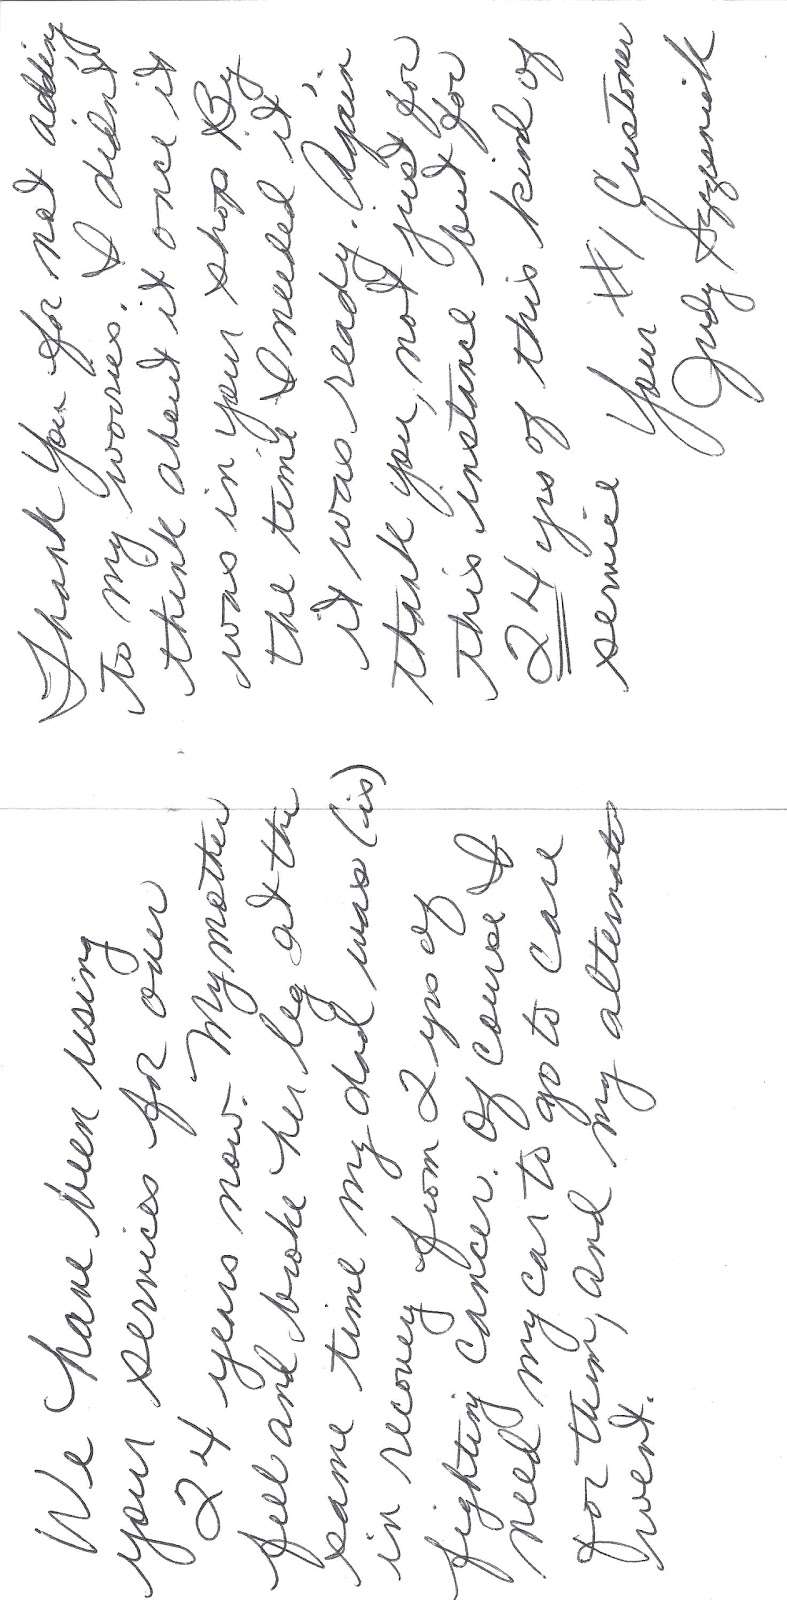 We have been using
your services for over
24 years now. My mother
fell and broke her leg at the
same time my dad was (is)
in recovey from 2 yrs of
fighting cancer. Of course I
need my car to go to care
for them, and my alternator
went.
Thank You for not adding
to my worries. I didn't
think about it once it
was in your shop. By
the time I needed it
it was ready. Again
thank you, not just for
this instance but for
24 yrs of this kind of
service
Your #1 Customer
Judy